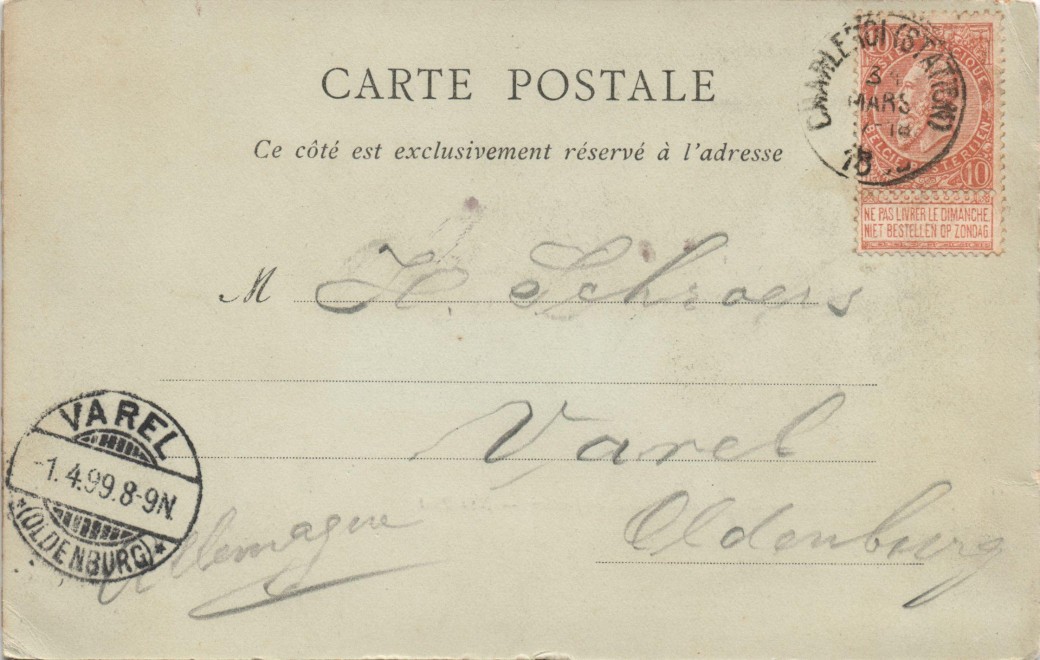 CARTE POSTALE
Ce côté est exclusivement réservé à l'adresse
CHARLEROI (STATION)
MARS
BELGIQUE
BELGIE
10
NE PAS LIVRER LE DIMANCHE
NIET BESTELLEN OP ZONDAG
M H Schroers
Varel
Oldenburg
Allemagne
VAREL
-1.4.99.8-9N.
*(OLDENBURG)*